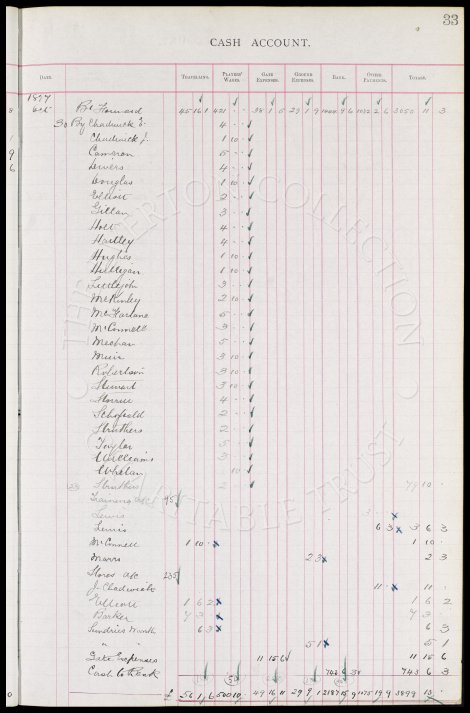 33
CASH ACCOUNT.
DATE. TRAVELLING. PLAYERS' WAGES. GATE EXPENSES. GROUND EXPENSES. BANK. OTHER PAYMENTS. TOTALS.
1897
Oct Bt Forward 45 16 1 421 - - 38 1 5 29 1 9 9 6 2 6 3050 11 3
30 By Chadwick E. 4 - -
Chadwick J. 1 10 -
Cameron 5 - -
Dewers 4 - -
Douglas 1 10 -
Elliott 2 - -
Gillan 3 - -
Holt 4 - -
Hartley 4 - -
Hughes 1 10 -
Hilligan 1 10 -
Littlejohn 3 - -
McKinley 2 10 -
McFarlane 5 - -
McConnell 3 - -
Meehan 5 - -
Muir 3 10 -
Robertson 3 10 -
Stewart 3 10 -
Storrier 4 - -
Schofield 2 - -
Struthers 2 - -
Taylor 5 - -
Williams 3 - -
Whelan 10 -
23 Struthers 2 - - 79 10 -
Training a/c 95
Lewis 3 - -
Lewis 6 3 3 6 3
McConnell 1 10 - 1 10 -
Marrs 2 3 2 3
Stores a/c 235
J. Chadwick 11 - 11 -
Elliott 1 6 2 1 6 2
Barker 7 3 7 3
Sundries Month 6 3 6 3
" 5 1 5 1
Gate Expenses 11 15 6 11 15 6
Cash to Bank 743 6 3 743 6 3
£ 56 1 6 500 10 - 49 16 11 29 9 1 2187 15 9 1075 19 9 3899 13 -
THE EVERTON COLLECTION CHARITABLE TRUST